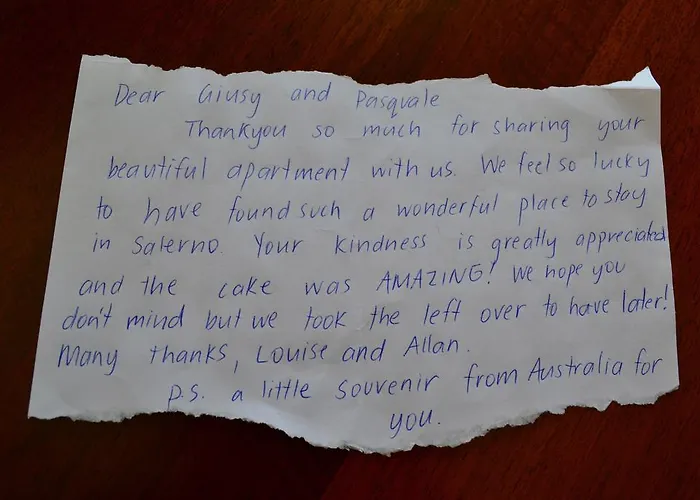 Dear Giusy and Pasquale
Thankyou so much for sharing your
beautiful apartment with us. We feel so lucky
to have found such a wonderful place to stay
in Salerno. Your kindness is greatly appreciated
and the cake was AMAZING! We hope you
don't mind but we took the left over to have later!
Many thanks, Louise and Allan.
P.S. a little souvenir from Australia for
you.